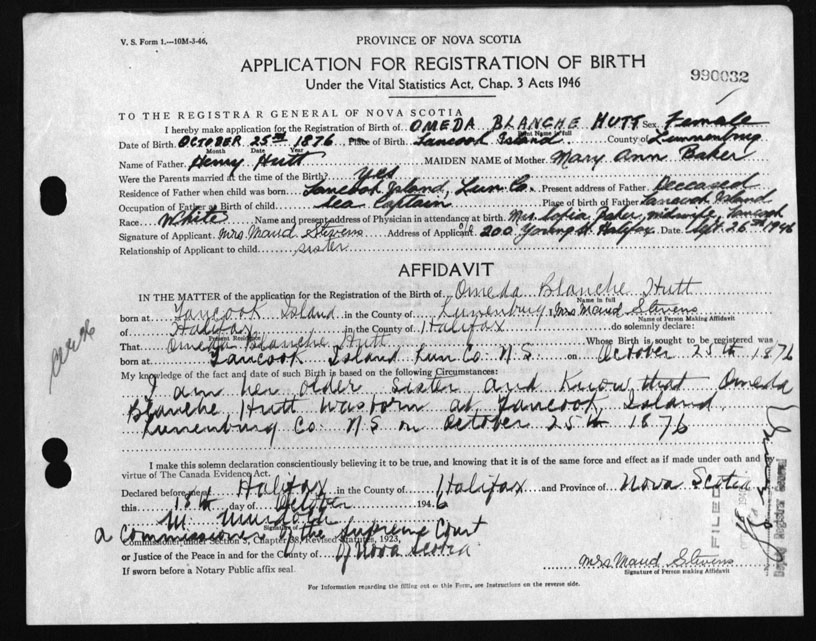 V. S. Form 1.—10M-3-46.
PROVINCE OF NOVA SCOTIA
APPLICATION FOR REGISTRATION OF BIRTH
Under the Vital Statistics Act, Chap. 3 Acts 1946
990032
TO THE REGISTRAR GENERAL OF NOVA SCOTIA
I hereby make application for the Registration of Birth of OMEDA BLANCHE HUTT Sex Female
Print Name in full
Date of Birth OCTOBER 25TH 1876 Place of Birth Tancook Island County of Lunenburg
Month Date Year
Name of Father Henry Hutt MAIDEN NAME of Mother Mary Ann Baker
Were the Parents married at time of the Birth? Yes
Residence of Father when child was born Tancook Island, Lun Co. Present address of Father Deceased
Occupation of Father at Birth of child Sea Captain Place of birth of Father Tancook Island
Race White Name and present address of Physician in attendance at birth Mrs. Sofia Baker, midwife, Tancook
Signature of Applicant Mrs Maud Stevens Address of Applicant 200 Young St. Halifax Date Sept. 26TH 1946
Relationship of Applicant to child sister
AFFIDAVIT
IN THE MATTER of the application for the Registration of Birth of Omeda Blanche Hutt
Name in full
born at Tancook Island in the County of Lunenburg I Mrs Maud Stevens
Name of Person Making Affidavit
of Halifax in the County of Halifax do solemnly declare:
Present Residence
That Omeda Blanche Hutt Whose Birth is sought to be registered was
born at Tancook Island Lun Co. N.S. on October 25th 1876
My knowledge of the fact and date of such Birth is based on the following Circumstances:
I am her older sister and know that Omeda
Blanche Hutt was born at Tancook, Island
Lunenburg Co. N.S on October 25th 1876
I make this solemn declaration conscientiously believing it to be true, and knowing that it is of the same force and effect as if made under oath and by
virtue of The Canada Evidence Act.
Declared before me at Halifax in the County of Halifax and Province of Nova Scotia
this 18th day of October 1946
M. Murdoch
Signature of
a Commissioner of the Supreme Court
Commissioner under Section 3, Chapter 38, Revised Statutes, 1923,
or Justice of the Peace in and for the County of of Nova Scotia
If sworn before a Notary Public affix seal.
Mrs Maud Stevens
Signature of Person making Affidavit
For Information regarding the filling out of this Form, see Instructions on the reverse side.
FILED